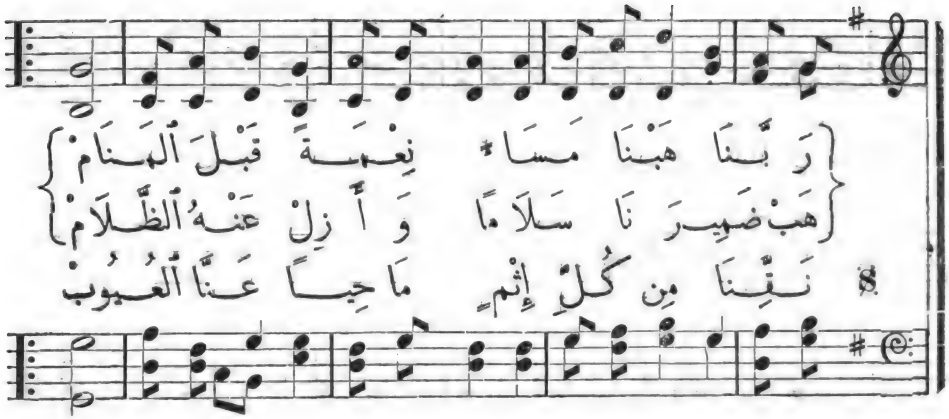 رَ بَّنَا هَبْنَا مَسَاءً نِعْمَةً قَبْلَ ٱلْمَنَامْ
هَبْ ضَمِيرَ نَا سَلَامًا وَ أَ زِلْ عَنْهُ ٱلظَّلَامْ
نَقِّنَا مِن كُلِّ إِثْمٍ مَا حِيًا عَنَّا ٱلْعُيُوبْ